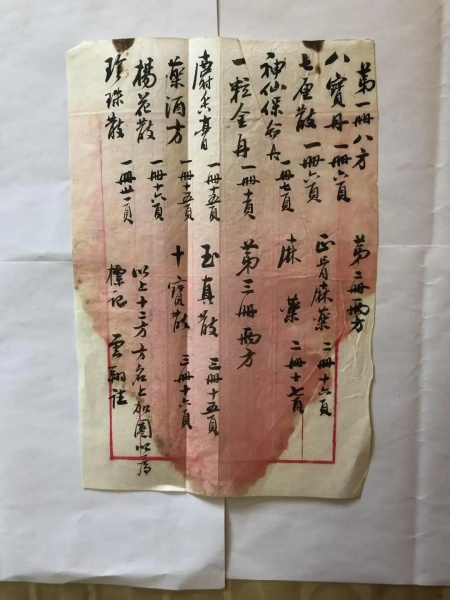 第一册八方 第二册兩方
八寶丹 一册六頁
七厘散 一册六頁 正骨麻藥 二册十六頁
神仙保命丹 一册七頁 麻藥 二册十七頁
一粒金丹 一册十頁 第三册兩方
麝香膏 一册十五頁 玉真散 三册十五頁
藥酒方 一册十五頁 十寶散 三册十六頁
楊花散 一册十六頁 以上十二方方名上加圈以為
珍珠散 一册卅一頁 標記 雲翔註